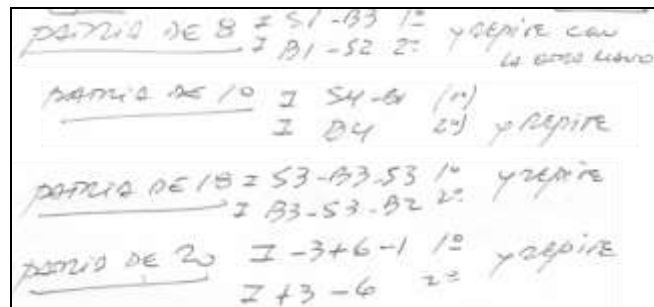 PATRIA DE 8 I S1-B3 1º
I B1-S2 2º y REPITE CON
LA OTRA MANO
PATRIA DE 10 I S4-B1 (1º)
I B4 2º) y REPITE
PATRIA DE 18 I S3-B3-S3 1º y REPITE
I B3-S3-B2 2º
PATRIA DE 20 I -3+6-1 1º y REPITE
I +3-6 2º